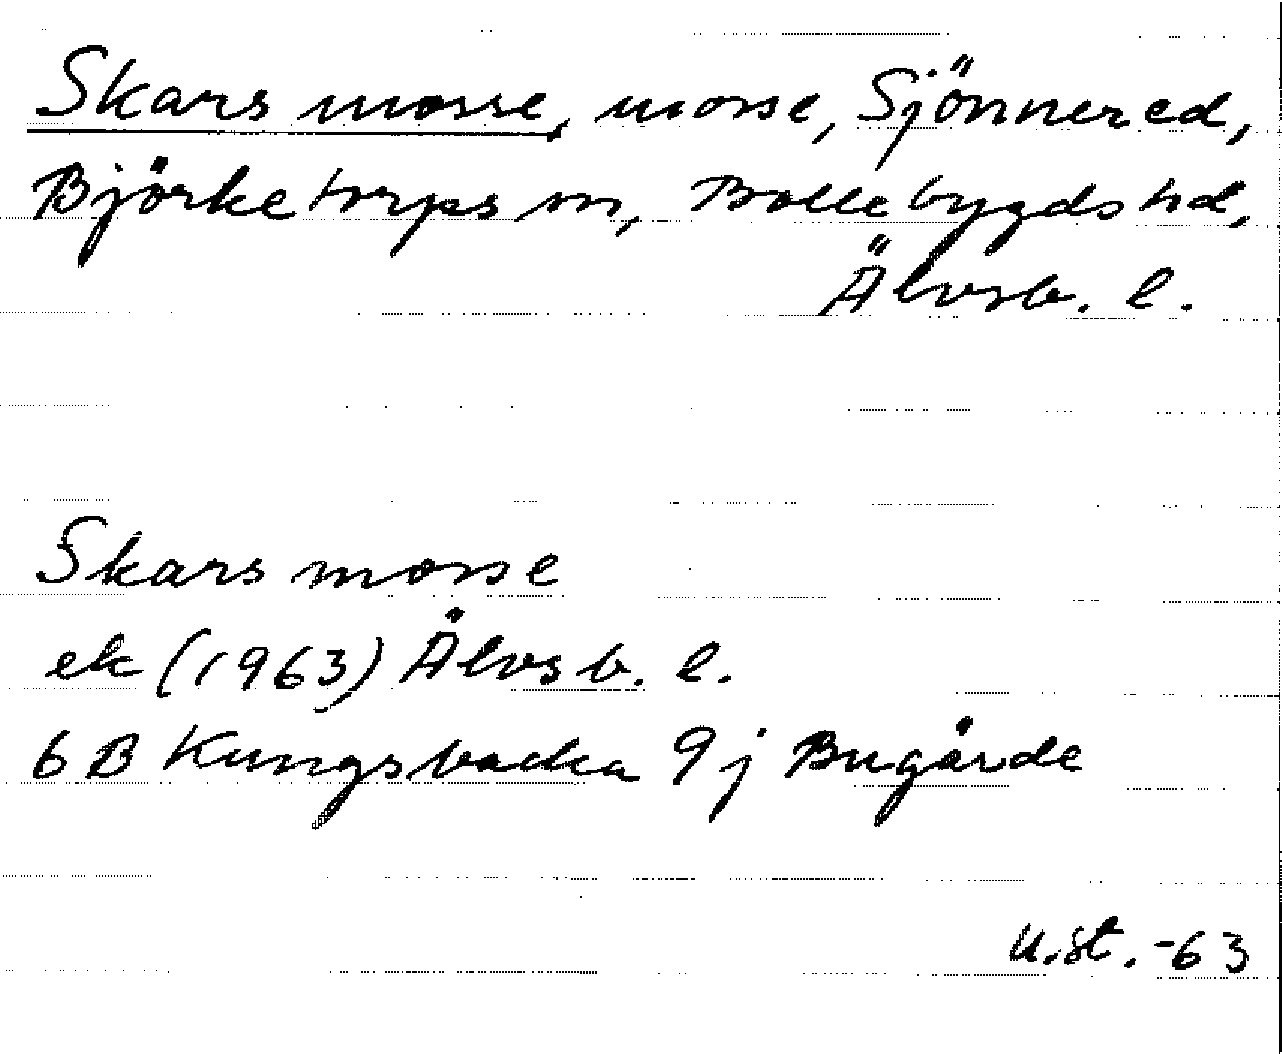 Skars mosse, mosse, Sjönnered,
Björketorps sn, Bollebygds hd,
Älvsb. l.
Skars mosse
ek (1963) Älvsb. l.
6 B Kungsbacka 9 j Bugärde
U.St. -63